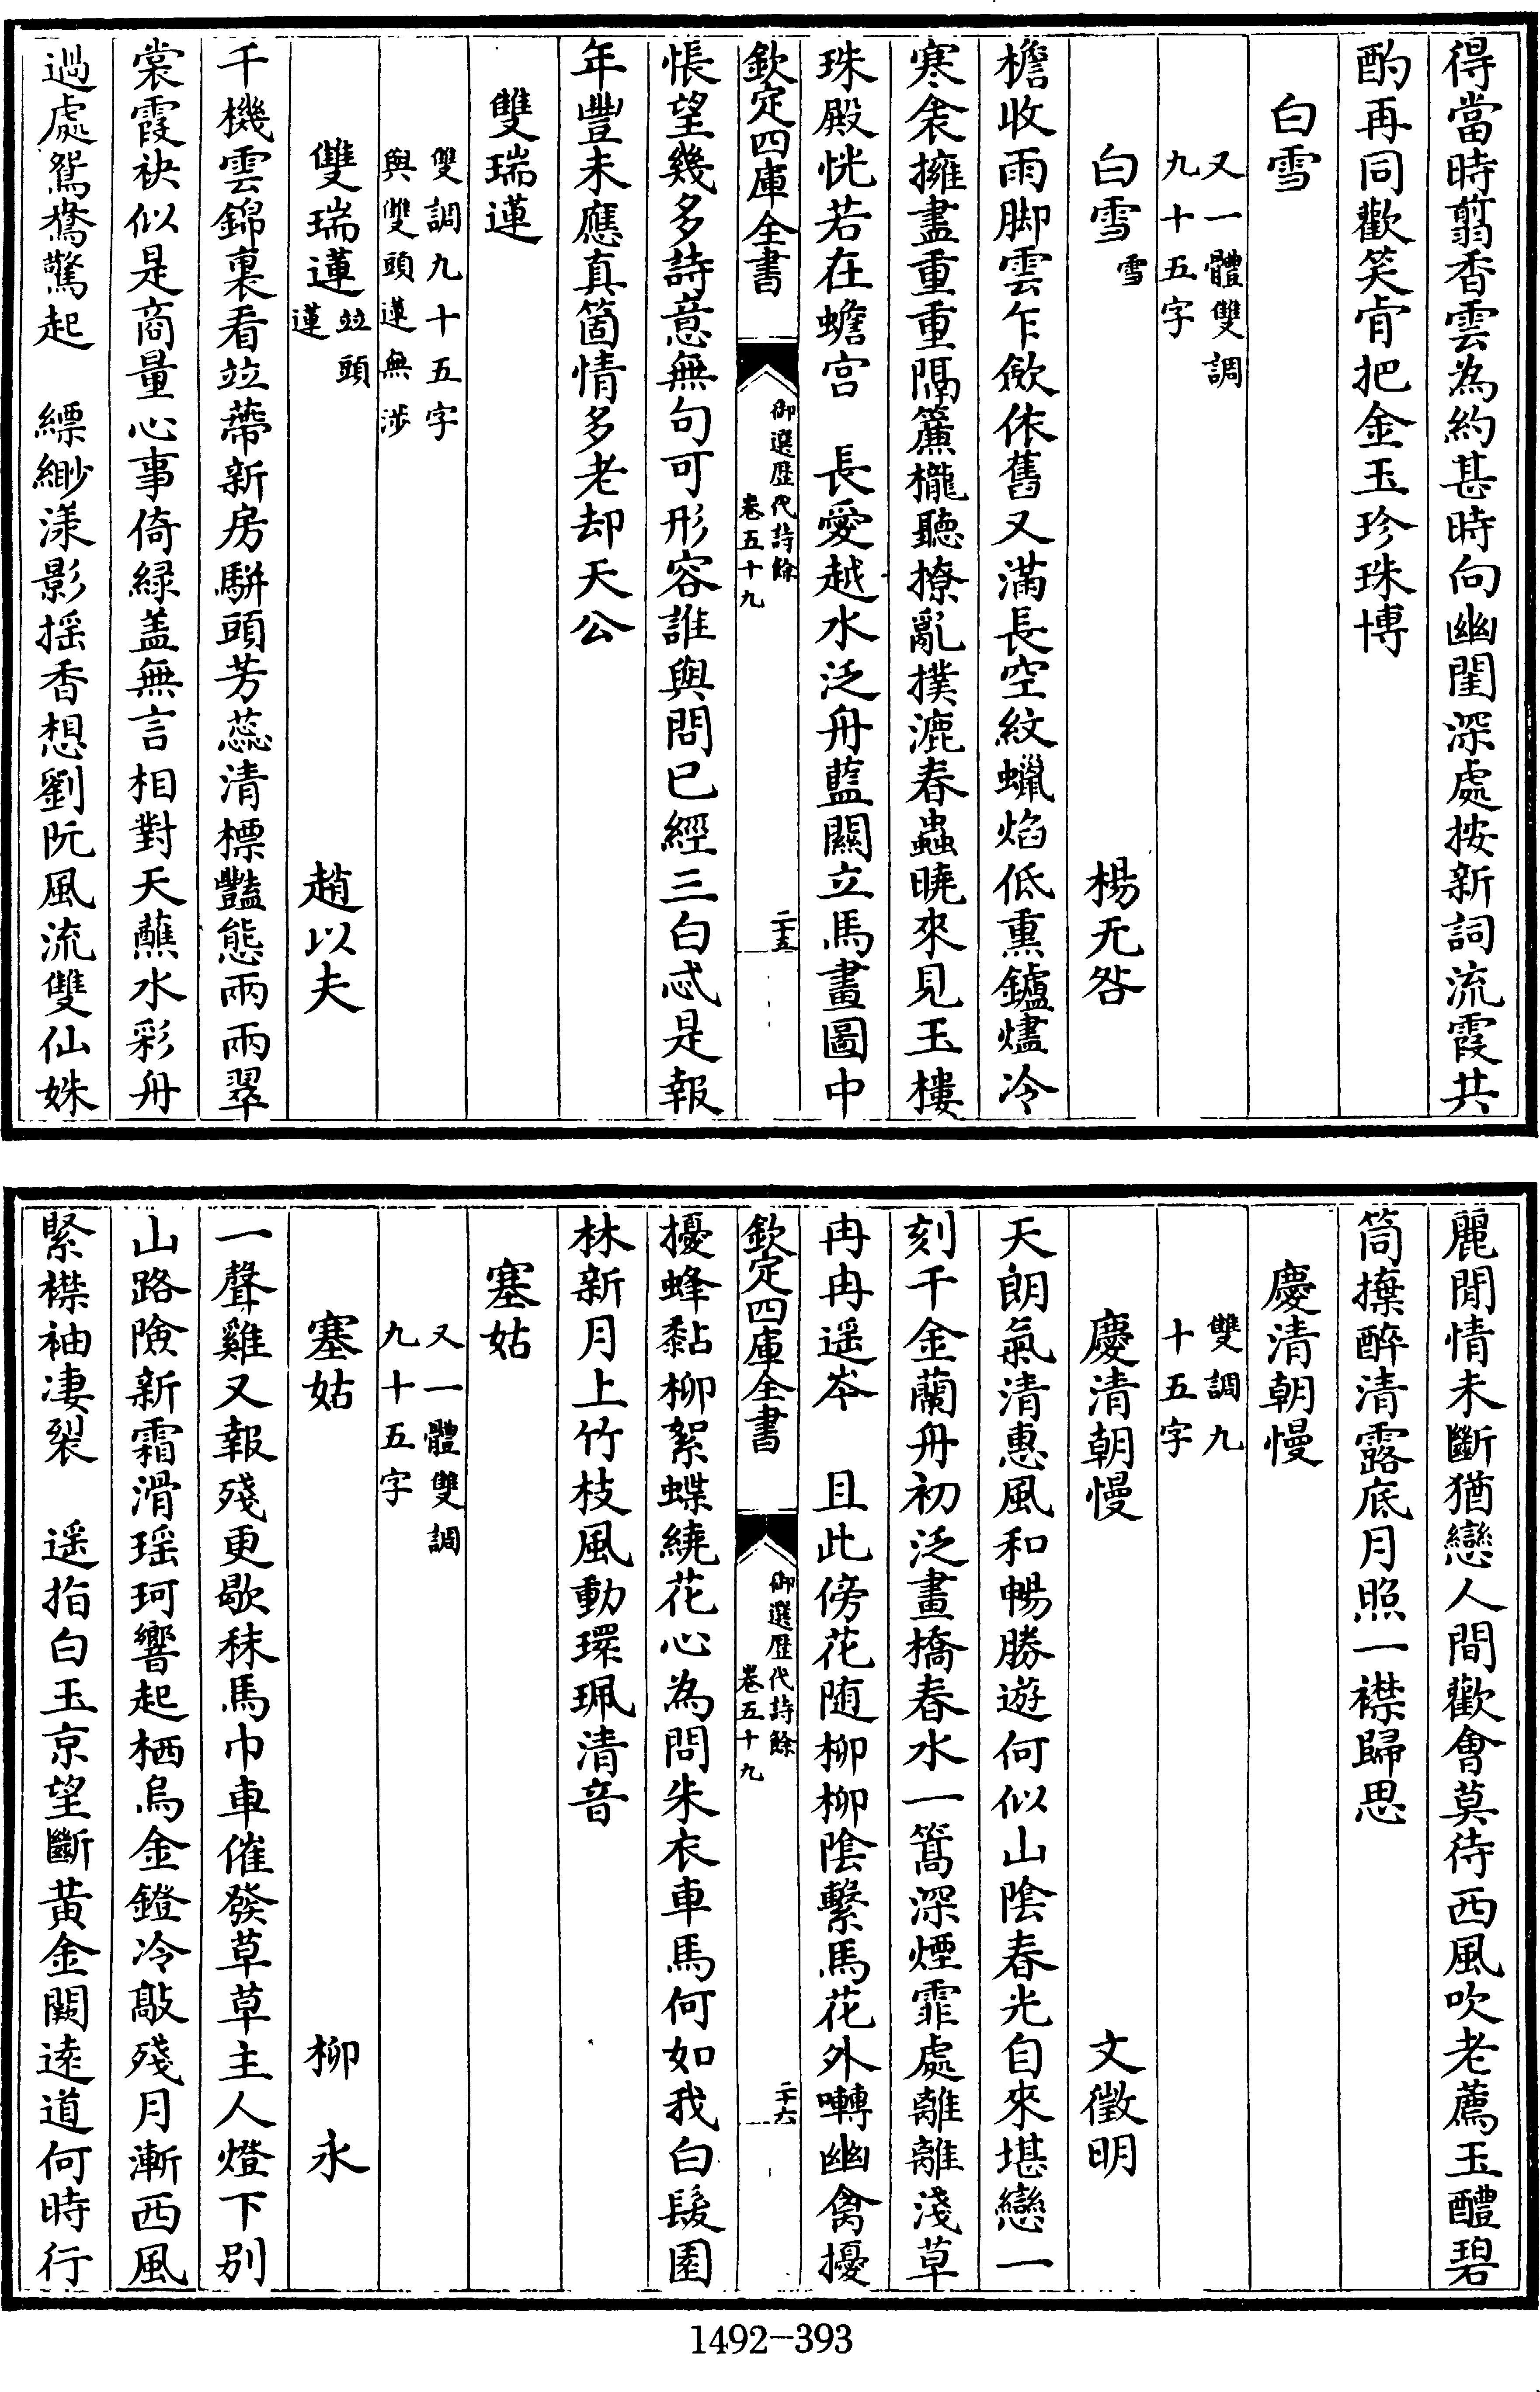 得當時翦香雲為約甚時向幽閨深處按新詞流霞共
酌再同歡笑肯把金玉珍珠博
白雪
又一體雙調
九十五字
白雪 雪 楊无咎
檐收雨脚雲乍斂依舊又滿長空紋蠟焰低熏鑪燼冷
寒衾擁盡重重隔簾櫳聽撩亂撲漉春蟲曉來見玉樓
珠殿恍若在蟾宫 長愛越水泛舟藍關立馬畫圖中
欽定四庫全書
御選歴代詩餘
卷五十九
二十五
悵望幾多詩意無句可形容誰與問已經三白忒是報
年豐未應真箇情多老却天公
雙瑞蓮
雙調九十五字
與雙頭蓮無涉
雙瑞蓮 竝頭蓮 趙以夫
千機雲錦裏看竝蔕新房駢頭芳蕊清標豔態兩兩翠
裳霞袂似是商量心事倚緑盖無言相對天蘸水彩舟
過處鴛鴦驚起 縹緲漾影揺香想劉阮風流雙仙姝
麗閒情未斷猶戀人間歡會莫待西風吹老薦玉醴碧
筒擫醉清露底月照一襟歸思
慶清朝慢
雙調九
十五字
慶清朝慢 文徵明
天朗氣清惠風和暢勝遊何似山隂春光自來堪戀一
刻千金蘭舟初泛畫橋春水一篙深煙霏處離離淺草
冉冉遥岑 且此傍花随柳柳隂繫馬花外囀幽禽擾
欽定四庫全書
御選歴代詩餘
卷五十九
二十六
擾蜂黏柳絮蝶繞花心為問朱衣車馬何如我白髮園
林新月上竹枝風動環珮清音
塞姑
又一體雙調
九十五字
塞姑 柳永
一聲雞又報殘更歇秣馬巾車催發草草主人燈下别
山路險新霜滑瑶珂響起栖烏金鐙冷敲殘月漸西風
緊襟袖凄裂 遥指白玉京望斷黄金闕逺道何時行
1492-393